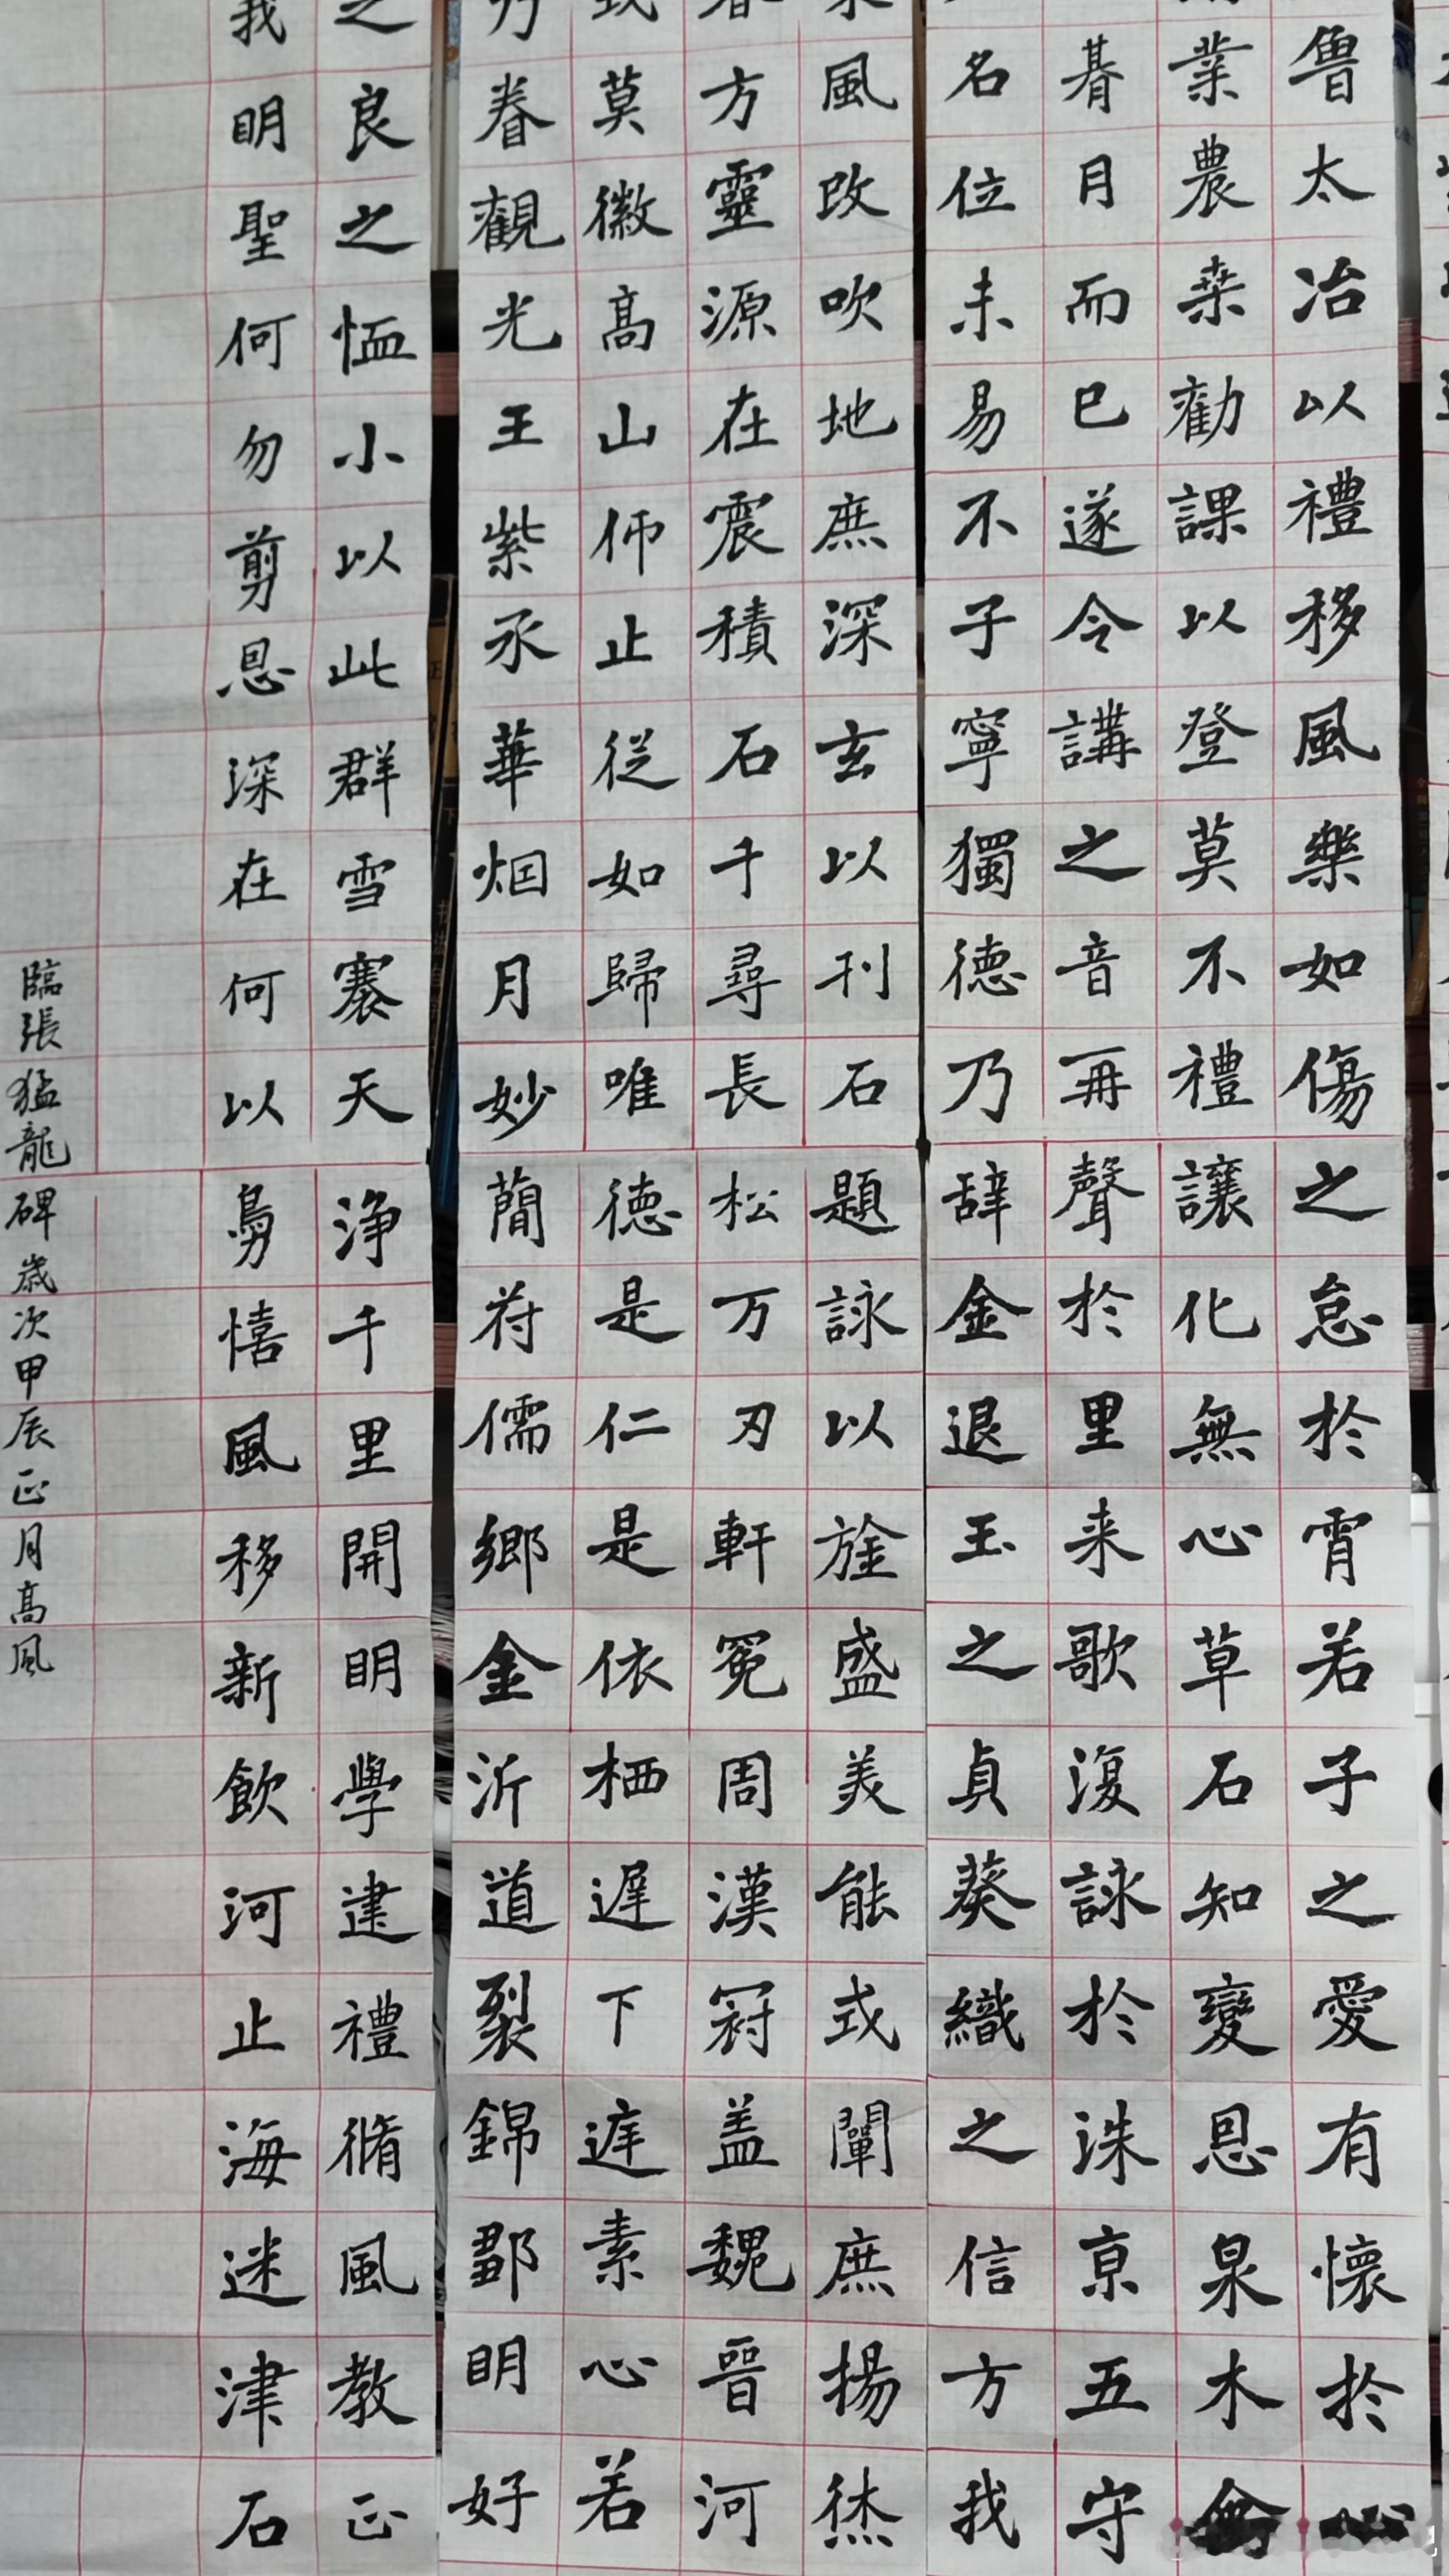 魯太冶以禮移風樂如傷之怠於宵若子之愛有懷於心
業農桒勸課以登莫不禮讓化無心草石知變恩泉木禽
朞月而已遂令講之音再聲於里来歌復詠於洙亰五守
名位未易不子寧獨德乃辞金退玉之貞葵織之信方我
風改吹地庶深玄以刊石題詠以旌盛美能式闡庶揚烋
方靈源在震積石千尋長松万刃軒冕周漢冠盖魏晉河
莫徽高山仰止從如歸唯德是仁是依栖遲下遅素心若
乃眷觀光王紫承華烟月妙蕳苻儒鄉金沂道裂錦鄒明好
之良之恤小以此群雪褰天浄千里開明學建禮脩風教正
我明聖何勿剪恩深在何以鳧憘風移新飲河止海迷津石
臨張猛龍碑歲次甲辰正月高風